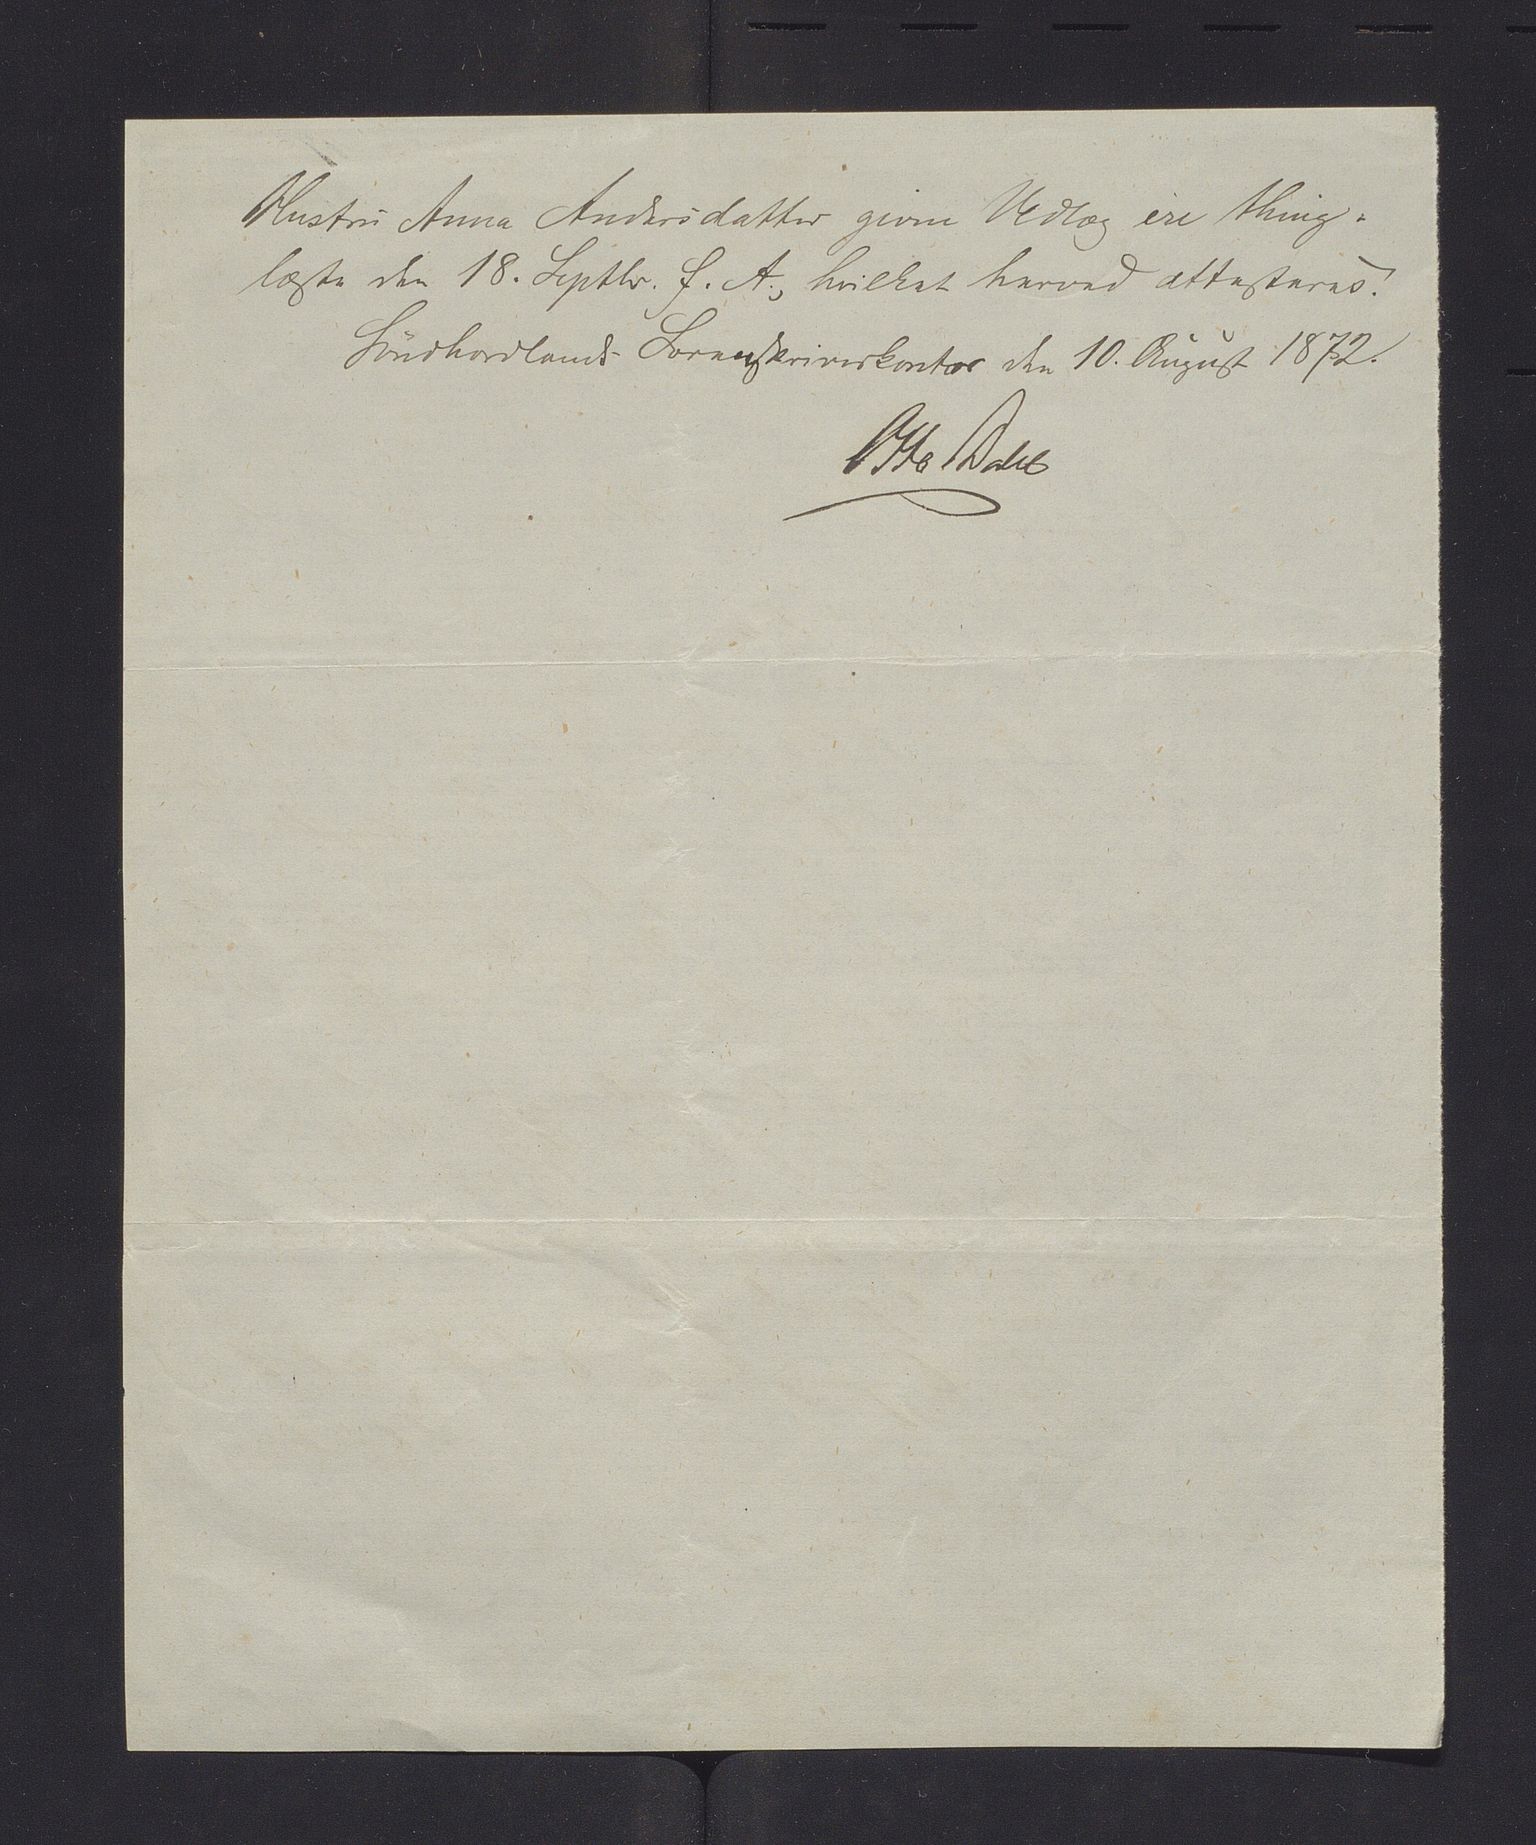 Hustru Anna Andersdatter givne Udlæg ere thing-
læste den 18. Septbr. f. A., hvilket herved attesteres.
Söndhordlands Sorenskriverkontor den 10. August 1872.
Otto Dahl